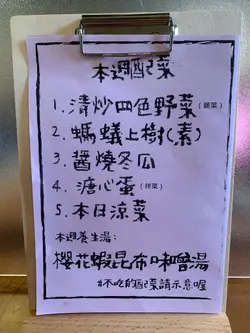 本週配菜
1.清炒四色野菜(蔬菜)
2.螞蟻上樹(素)
3.醬燒冬瓜
4.溏心蛋(擇菜)
5.本日涼菜
本週養生湯:
櫻花蝦昆布味噌湯
#不吃的配菜請示意喔